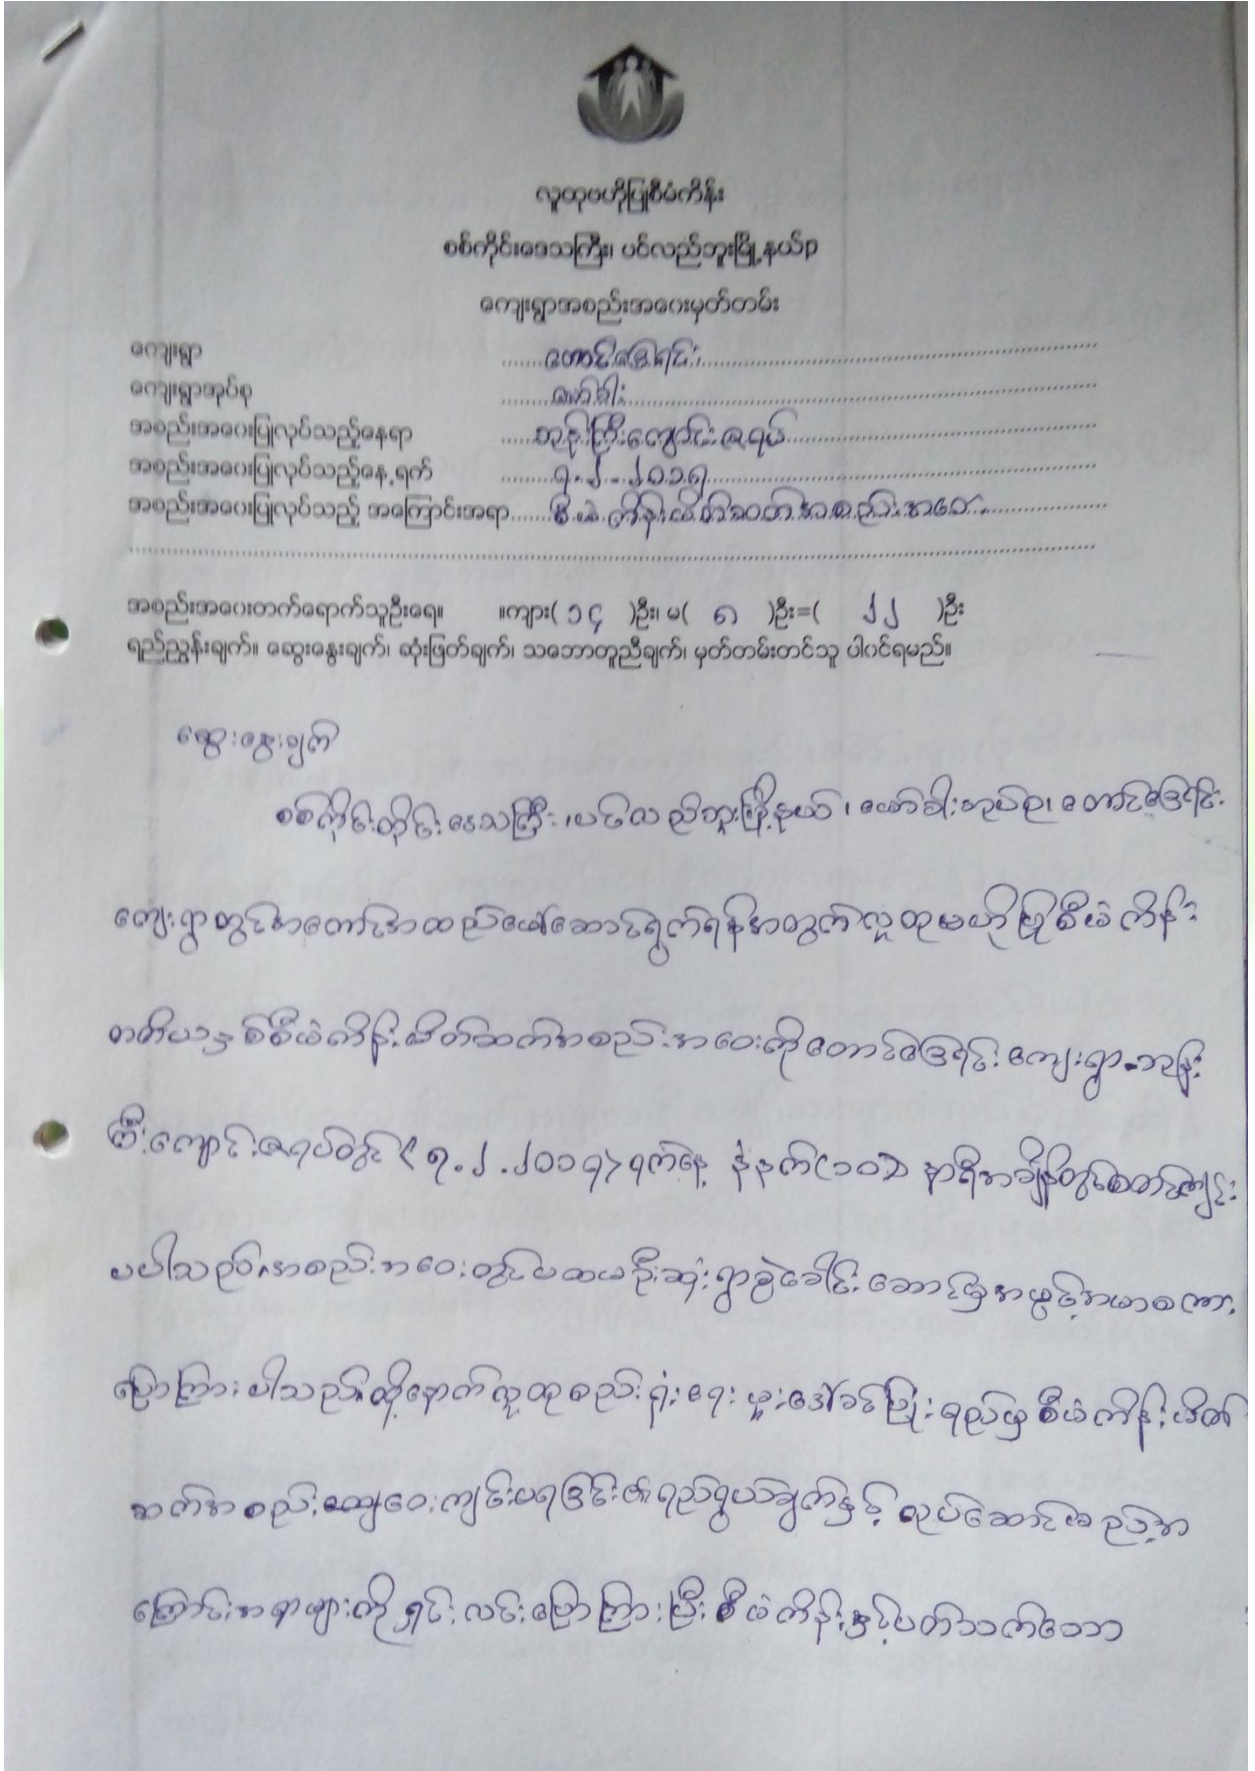 လူထုဗဟိုပြုစီမံကိန်း
စစ်ကိုင်းဒေသကြီး၊ ပင်လည်ဘူးမြို့နယ်p
ကျေးရွာအစည်းအဝေးမှတ်တမ်း
ကျေးရွာ ........တောင်မြေရင်း........
ကျေးရွာအုပ်စု ........မော်ခါး........
အစည်းအဝေးပြုလုပ်သည့်နေရာ ........ဘုန်းကြီးကျောင်းဇရပ်........
အစည်းအဝေးပြုလုပ်သည့်နေ့ရက် ........၇.၂.၂၀၁၇........
အစည်းအဝေးပြုလုပ်သည့် အကြောင်းအရာ........စီမံကိန်းမိတ်ဆက်အစည်းအဝေး........
အစည်းအဝေးတက်ရောက်သူဦးရေ။ ။ကျား( ၁၄ )ဦး၊ မ( ၈ )ဦး=( ၂၂ )ဦး
ရည်ညွှန်းချက်။ ဆွေးနွေးချက်၊ ဆုံးဖြတ်ချက်၊ သဘောတူညီချက်၊ မှတ်တမ်းတင်သူ ပါဝင်ရမည်။
ဆွေးနွေးချက်
စစ်ကိုင်းတိုင်းဒေသကြီး၊ပင်လည်ဘူးမြို့နယ်၊ မော်ခါးအုပ်စု၊ တောင်မြေရင်း
ကျေးရွာတွင်အကောင်အထည်ဖေါ်ဆောင်ရွက်ရန်အတွက်လူထုဗဟိုပြုစီမံကိန်း
တတိယနှစ်စီမံကိန်းမိတ်ဆက်အစည်းအဝေးကိုတောင်မြေရင်းကျေးရွာ ဘုန်း
ကြီးကျောင်းဇရပ်တွင် (၇.၂.၂၀၁၇)ရက်နေ့ နံနက်(၁၀) နာရီအချိန်တွင်စတင်ကျင်း
ပပါသည်။အစည်းအဝေးတွင်ပထမဦးဆုံးရွာခွဲခေါင်းဆောင်မှအဖွင့်အမှာစကား
ပြောကြားပါသည်။ထို့နောက်လူထုစည်းရုံးရေးမှူးဒေါ်ခင်ဖြိုးရည်မှစီမံကိန်းမိတ်
ဆက်အစည်းအဝေးကျင်းပရခြင်း၏ရည်ရွယ်ချက်နှင့် လုပ်ဆောင်မည့်အ
ကြောင်းအရာများကိုရှင်းလင်းပြောကြားပြီးစီမံကိန်းနှင့်ပတ်သက်သော